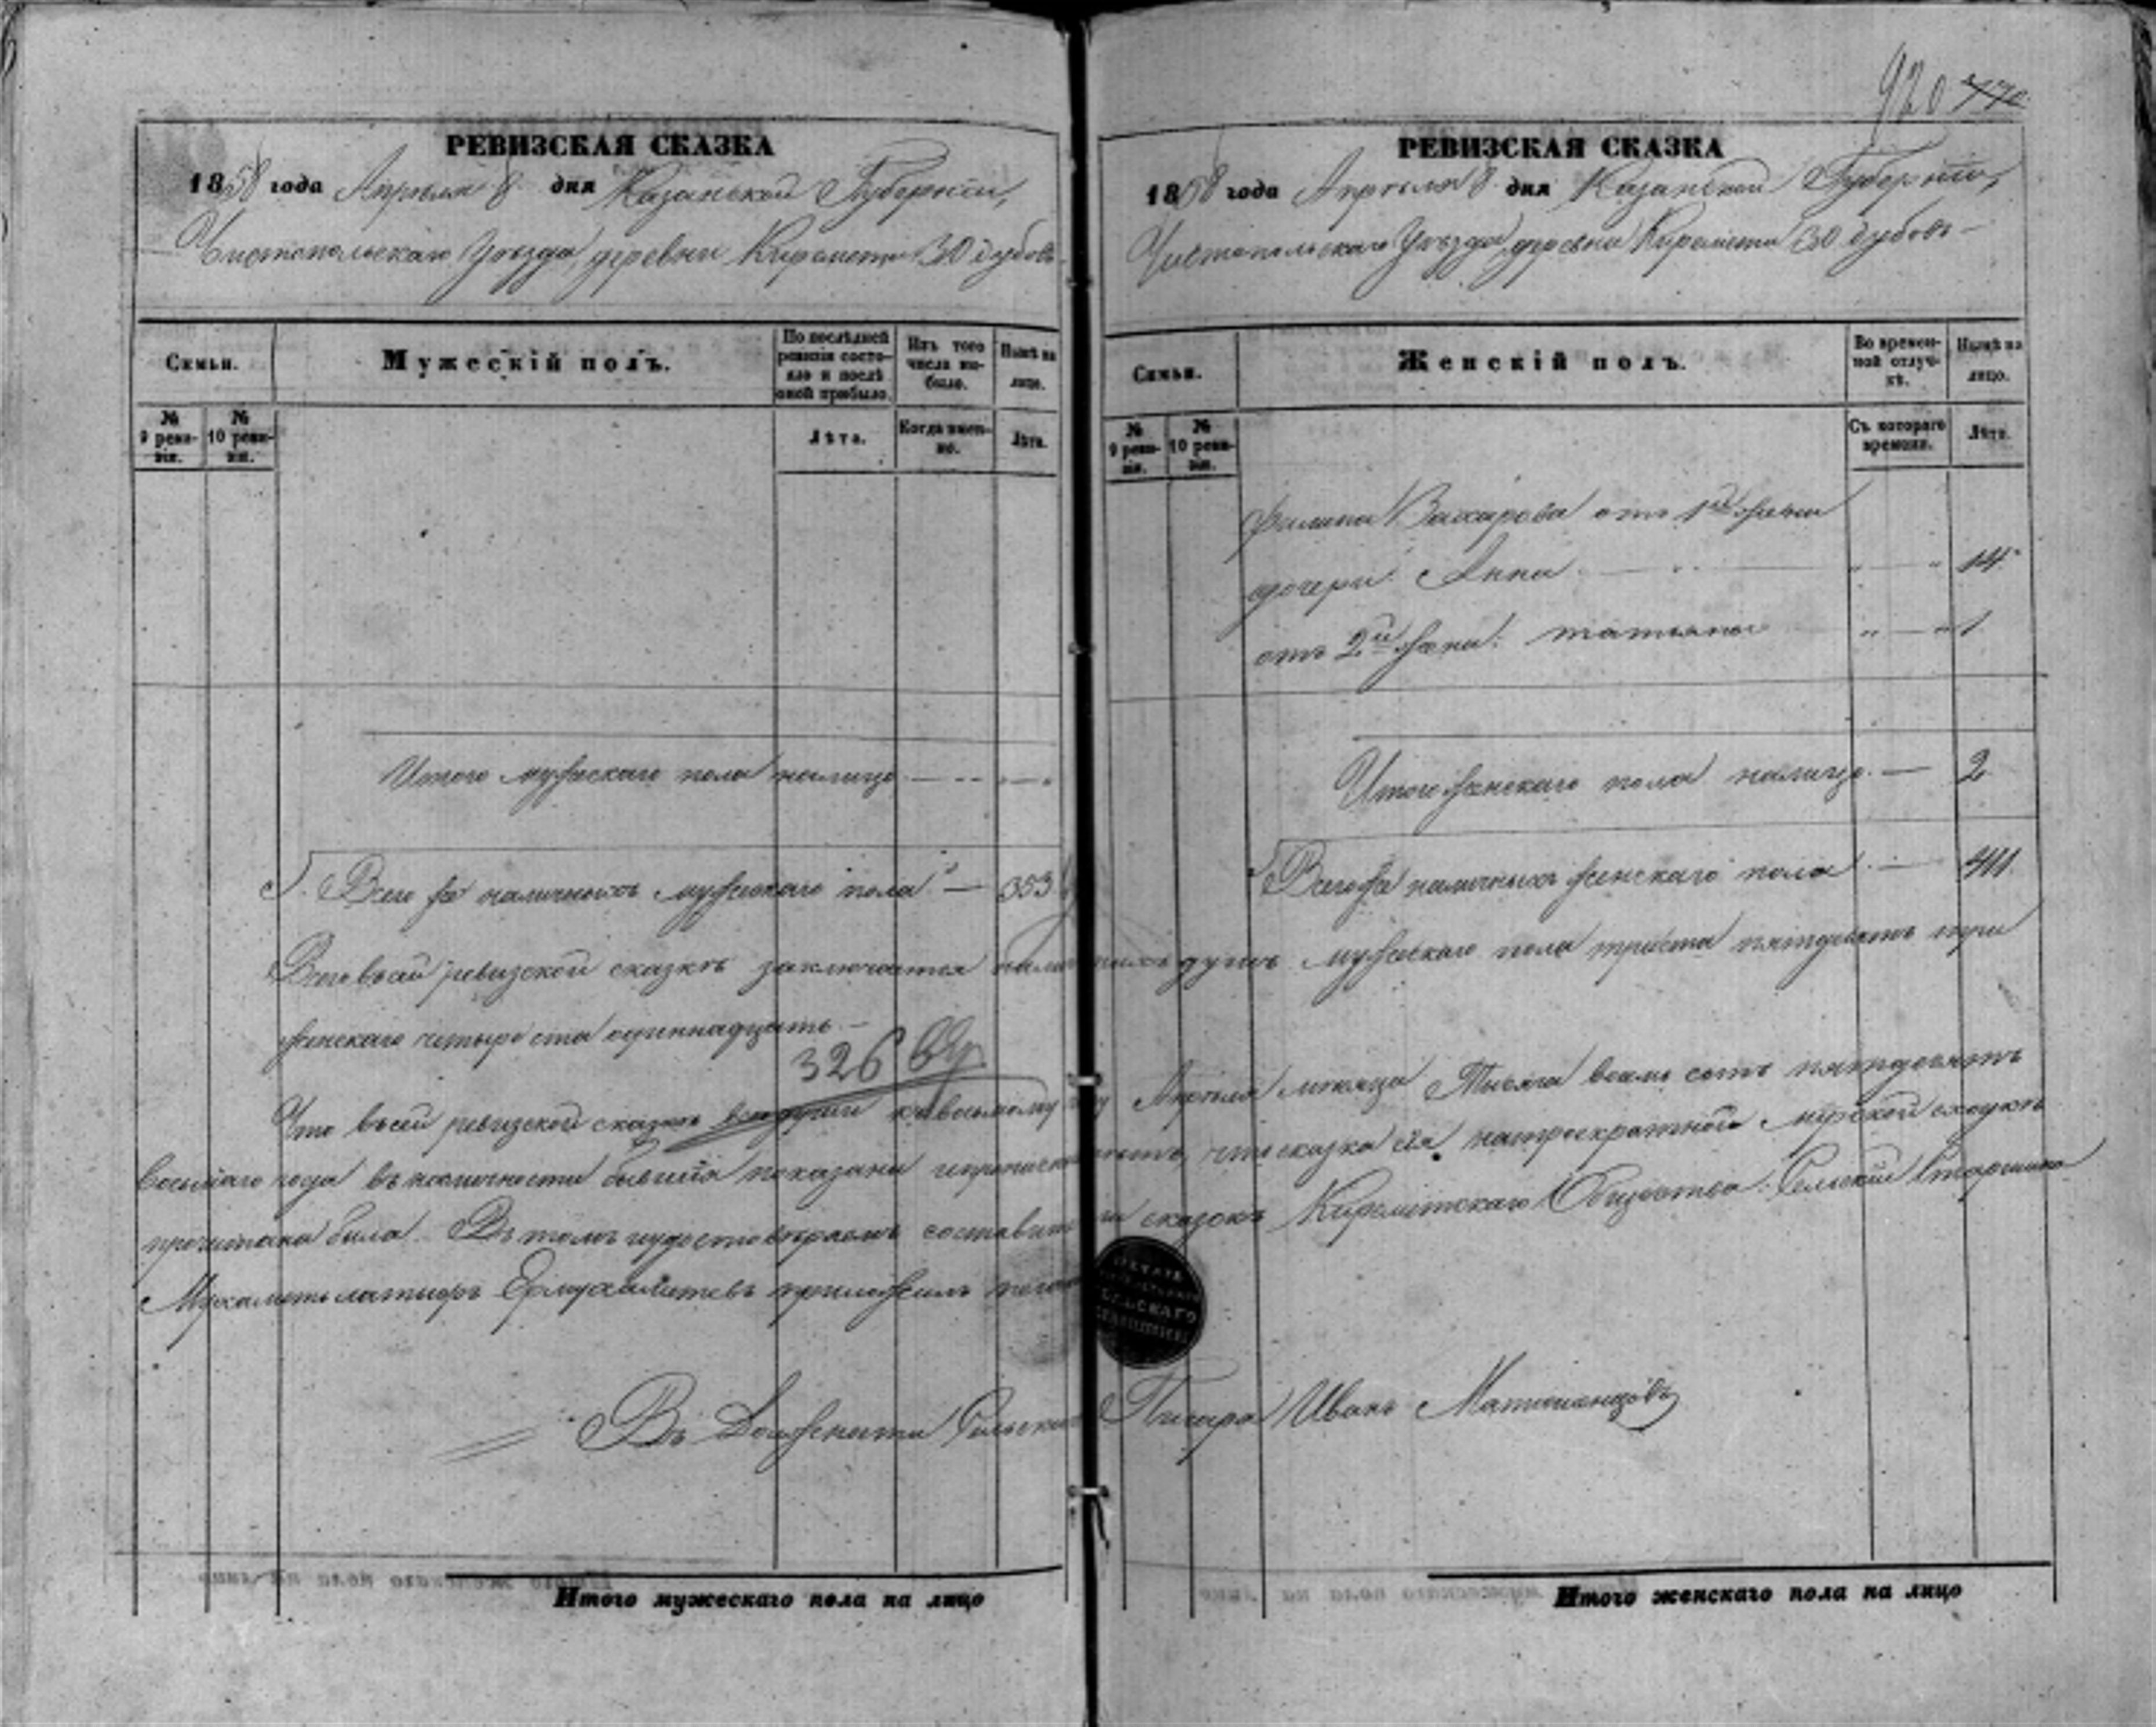 920
РЕВИЗСКАЯ СКАЗКА
1858 года Апреля 8 дня Казанской Губернии,
Чистопольскаго Уезда, деревни Киремети 30 дубовъ
Семьи.
Мужескій полъ.
По послѣдней ревизіи состояло и послѣ оной прибыло.
Изъ того числа выбыло.
Нынѣ на лицо.
№ 9 ревизіи.
№ 10 ревизіи.
Лѣта.
Когда именно.
Лѣта.
Итого мужескаго пола налицо
Всего же наличныхъ мужескаго пола — 353
РЕВИЗСКАЯ СКАЗКА
1858 года Апреля 8 дня Казанской Губернии,
Чистопольскаго Уезда, деревни Киремети 30 дубовъ
Семьи.
Женскій полъ.
Во временной отлучкѣ.
Нынѣ на лицо.
№ 9 ревизіи.
№ 10 ревизіи.
Съ котораго времени.
Лѣта.
Филипа Захарова отъ 1й жены
дочери Анна 14
отъ 2й жены: татьяна 1
Итого женскаго пола налицо — 2
Всего же наличныхъ женскаго пола — 411
Всего въ сей ревизской сказкѣ заключается наличныхъ душъ мужескаго пола триста пятдесятъ три
женскаго четыреста одиннадцать —
326
Что въ сей ревизской сказкѣ все души къ восьмому Апреля месяца Тысяча восемь сотъ пятдесятъ
восьмаго года въ наличности бывшія показаны что сказка сія на мірской сходкѣ
прочитана была. Въ томъ и удостоверяемъ сказокъ Кирементскаго Общества Сельскій Старшина
приложилъ
СЕЛЬСКАГО
Въ Должности Сельскаго Писаря Иванъ
Итого мужескаго пола на лицо
Итого женскаго пола на лицо